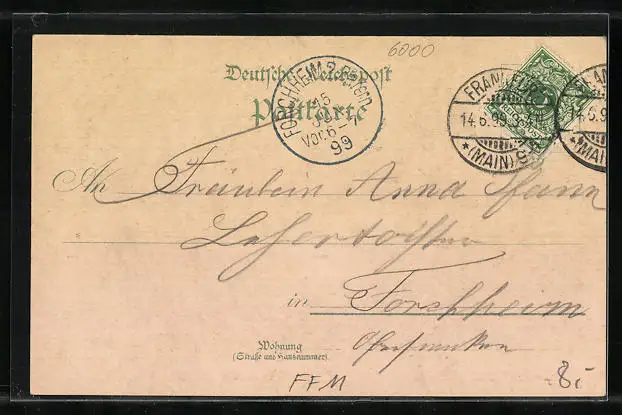 6000
Deutsche Reichspost
Postkarte
FORCHHEIM 2 Bayern
15
JUN
VOR. 6-7
99
FRANKFURT
14.6.99.
*(MAIN)
14.6.9
*(MAIN
An Fräulein Anna
in Forchheim
Oberfranken
Wohnung
(Straße und Hausnummer)
FFM
8.-